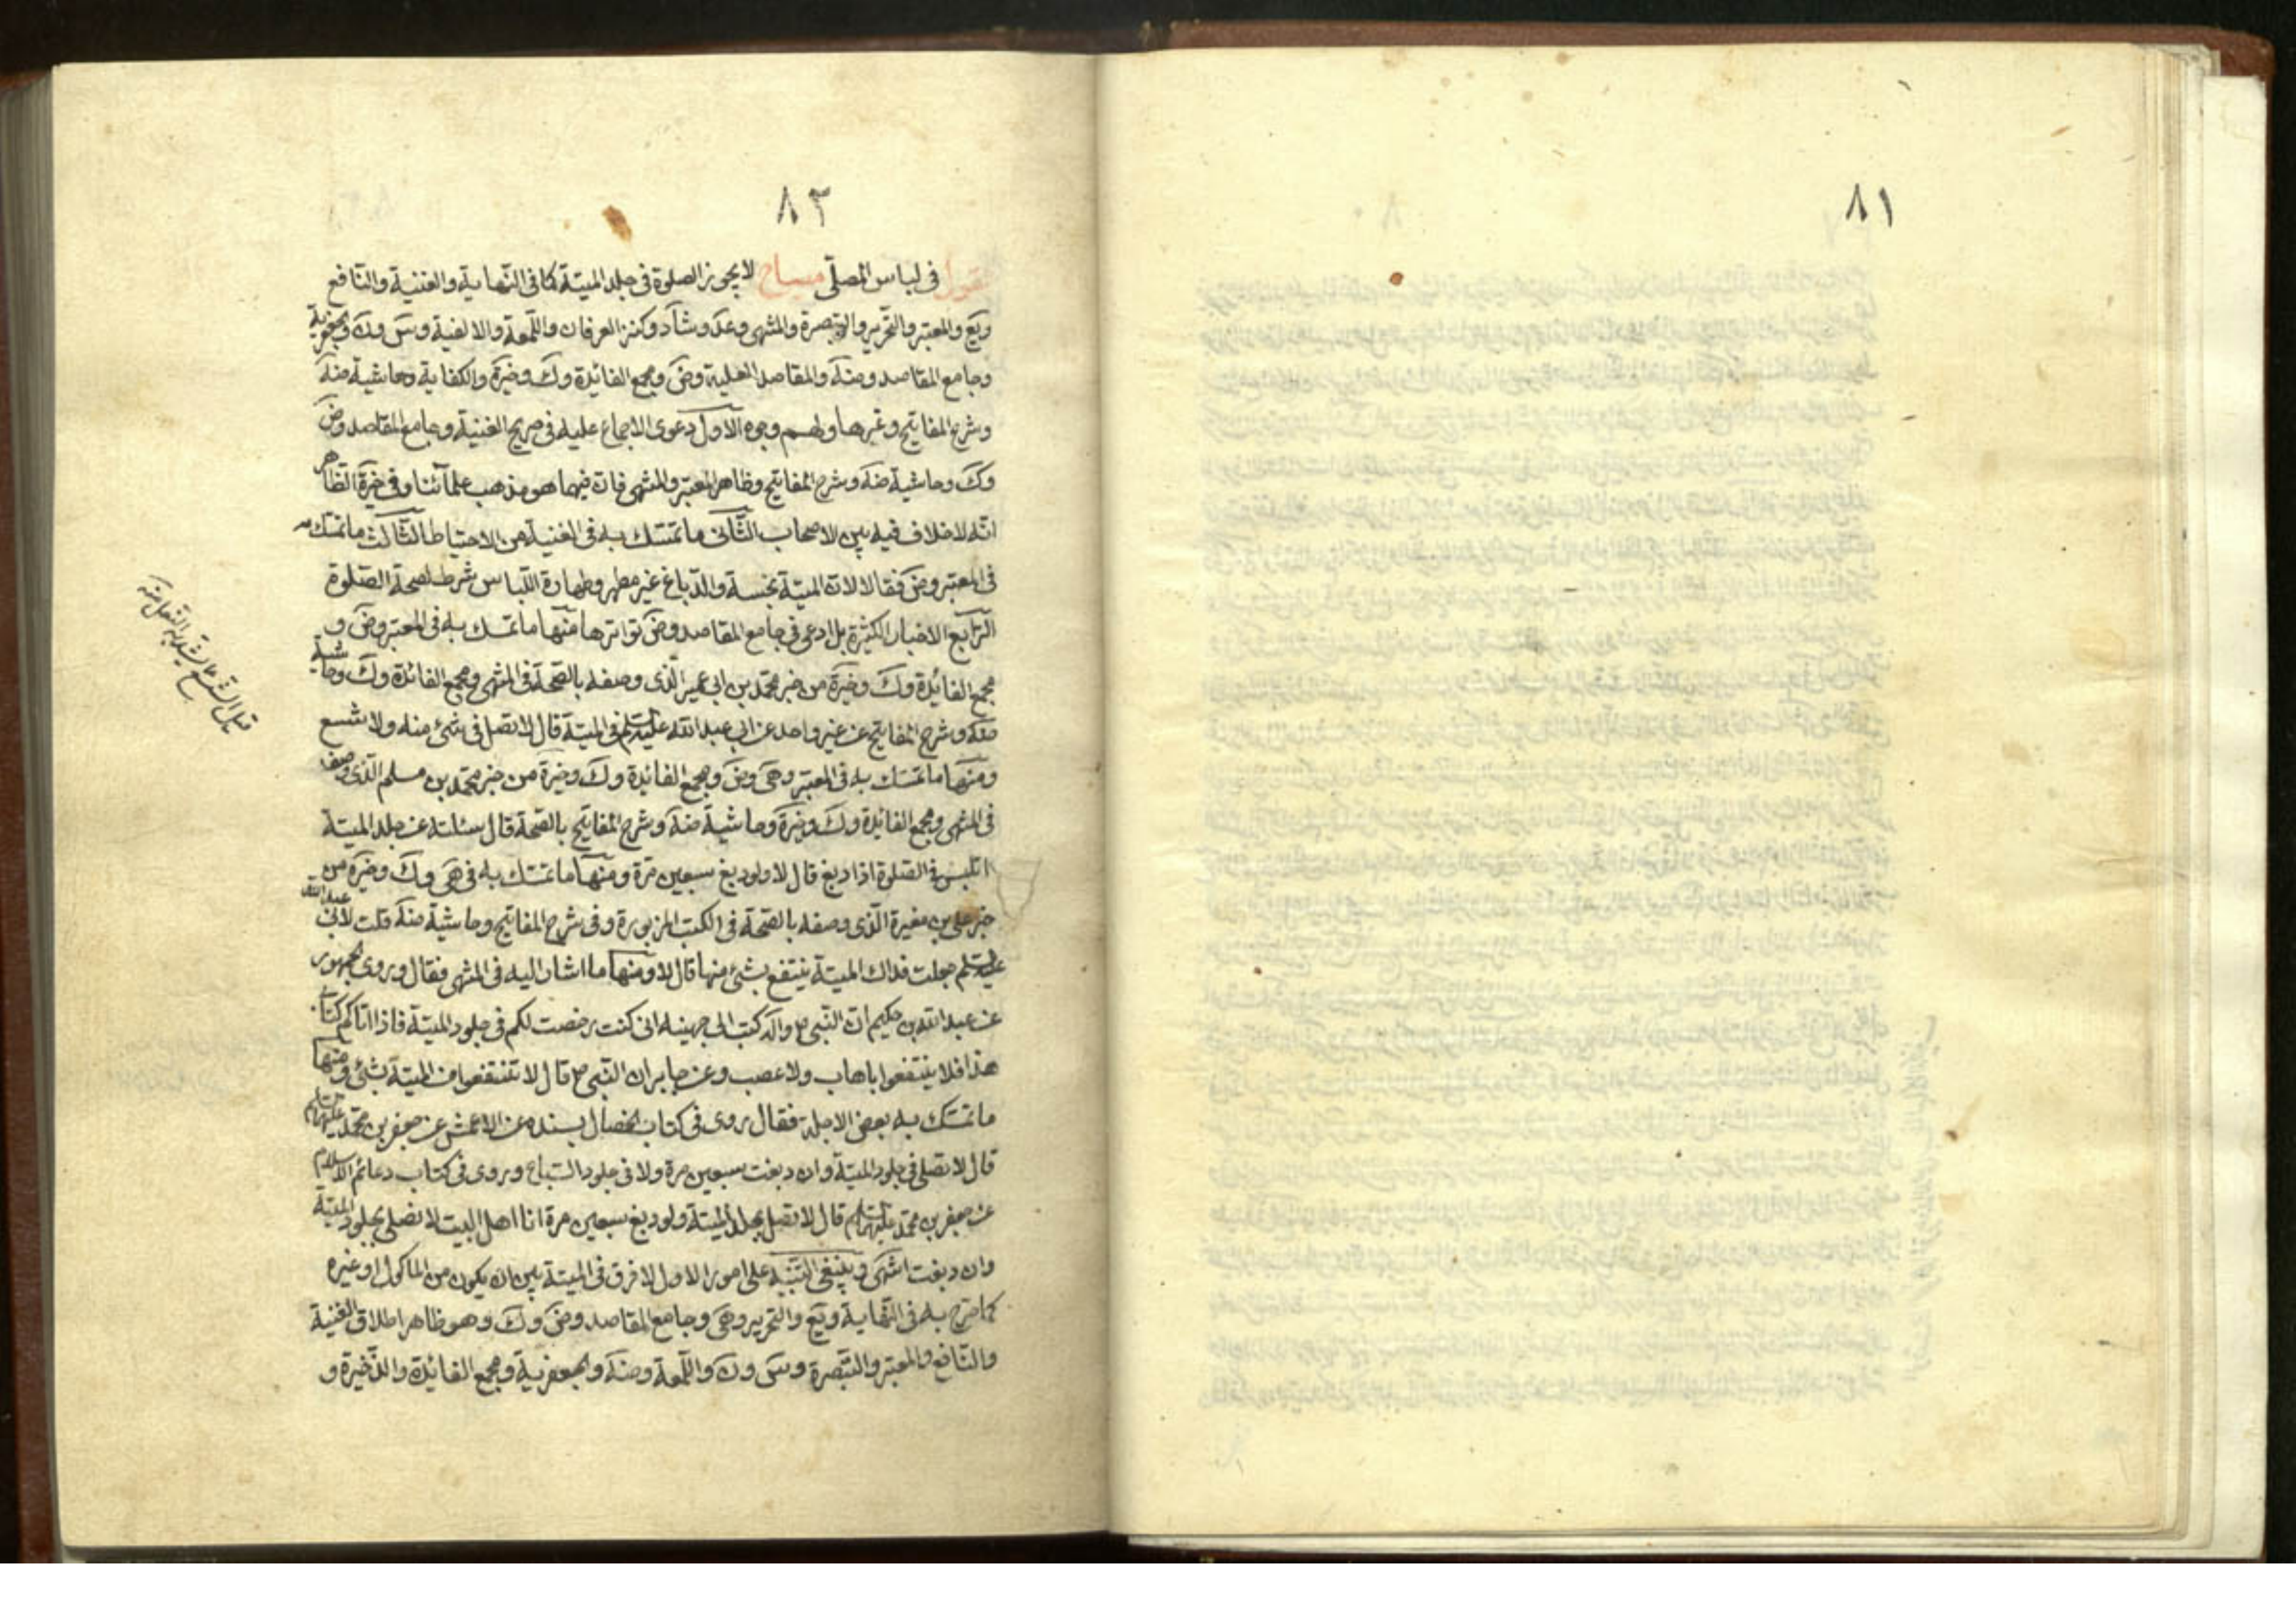 ٨١
٨٣
القول في لباس المصلّي مصباح لا يجوز الصلوة في جلد الميتة كما في النّهاية والغنية والنّافع
ويع والمعتبر والتحرير والتبصرة والمنتهى وعد وشاد وكنز العرفان واللّمعة والالفية وس ون والجعفرية
وجامع المقاصد وضه والمقاصد العلية وض ومجمع الفائدة وك وخيرة والكفاية وحاشية ضه
وشرح المفاتيح وغيرها ولهم وجوه الاول دعوى الاجماع عليه في صريح الغنية وجامع المقاصد وض
وك وحاشية ضه وشرح المفاتيح وظاهر المعتبر والمنتهى فان فيهما هو مذهب علمائنا وفي خيرة الظاهر
انّه لا خلاف فيه بين الاصحاب الثّاني ما تمسّك به في الغنية من الاحتياط الثّالث ما تمسّك به
في المعتبر وض فقالا لانّ الميتة نجسة والدّباغ غير مطهر وطهارة اللّباس شرط لصحة الصّلوة
الرّابع الاخبار الكثيرة بل ادعى في جامع المقاصد وض تواترها منها ما تمسك به في المعتبر وض و
مجمع الفائدة وك وخيرة من خبر محمّد بن ابي عمير الّذي وصفه بالصّحة في المنتهى ومجمع الفائدة وك وحاشية
ضه وشرح المفاتيح عن غير واحد عن ابي عبد الله عليه السلام في الميتة قال لا تصل في شئ منه ولا شسع
ومنها ما تمسّك به في المعتبر وهى وض ومجمع الفائدة وك وخيرة من خبر محمّد بن مسلم الّذي وصف
في المنتهى ومجمع الفائدة وك وخيرة وحاشية ضه وشرح المفاتيح بالصّحة قال سئلته عن جلد الميتة
ايلبس في الصلوة اذا دبغ قال لا ولو دبغ سبعين مرّة ومنها ما تمسّك به في هى وك وخيرة من
خبر علي بن مغيرة الّذي وصفه بالصّحة في الكتب المزبورة وفي شرح المفاتيح وحاشية ضه قلت لابي عبد الله
عليه السلام جعلت فداك الميتة ينتفع بشئ منها قال لا ومنها ما اشار اليه في المنتهى فقال وروى الجمهور
عن عبد الله بن حكيم انّ النّبي ص واله كتب الى جهينه اني كنت رخصت لكم في جلود الميتة فاذا اتاكم كتابي
هذا فلا ينتفعوا باهاب ولا عصب وعن جابر ان النّبي ص قال لا تنتفعوا من الميتة بشئ ومنها
ما تمسّك به بعض الاجلة فقال روى في كتاب الخصال بسنده عن الاعمش عن جعفر بن محمّد عليهما السلام
قال لا تصلي في جلود الميتة وان دبغت سبعين مرة ولا في جلود السّباع وروى في كتاب دعائم الاسلام
عن جعفر بن محمّد عليهما السلام قال لا تصل بجلد الميتة ولو دبغ سبعين مرة انا اهل البيت لا نصلي بجلود الميتة
وان دبغت انتهى وينبغي التّنبيه على امور الاول لا فرق في الميتة بين ان يكون من المأكول او غيره
كما صرّح به في النّهاية ويع والتحرير وهى وجامع المقاصد وض وك وهو ظاهر اطلاق الغنية
والنّافع والمعتبر والتّبصرة وس ون واللّمعة وضه والجعفرية ومجمع الفائدة والذّخيرة و